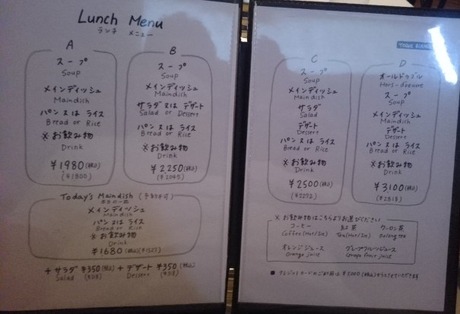 Lunch Menu
ランチ メニュー
A
スープ
Soup
メインディッシュ
Maindish
パン又は ライス
Bread or Rice
※お飲み物
Drink
¥1980(税込)
(¥1800)
B
スープ
Soup
メインディッシュ
Maindish
サラダ又は デザート
Salad or Dessert
パン又は ライス
Bread or Rice
※お飲み物
Drink
¥2,250(税込)
Today's Maindish
メインディッシュ
Maindish
パン又は ライス
Bread or Rice
※お飲み物
Drink
¥1680(税込)
+サラダ ¥350(税込) +デザート ¥350(税込)
Salad Dessert
C
スープ
Soup
メインディッシュ
Maindish
サラダ
Salad
デザート
Dessert
パン又は ライス
Bread or Rice
※お飲み物
Drink
¥2500(税込)
D
オールドゥブル
Hors-doeuvre
スープ
Soup
メインディッシュ
Maindish
デザート
Dessert
パン又は ライス
Bread or Rice
※お飲み物
Drink
¥3100(税込)
(¥2818)
※お飲み物はこちらよりお選びください
コーヒー 紅茶 ウーロン茶
Coffee(Hot/Ice) Tea(Hot/Ice) Oolong tea
オレンジジュース グレープフルーツジュース
Orange juice Grape fruit juice